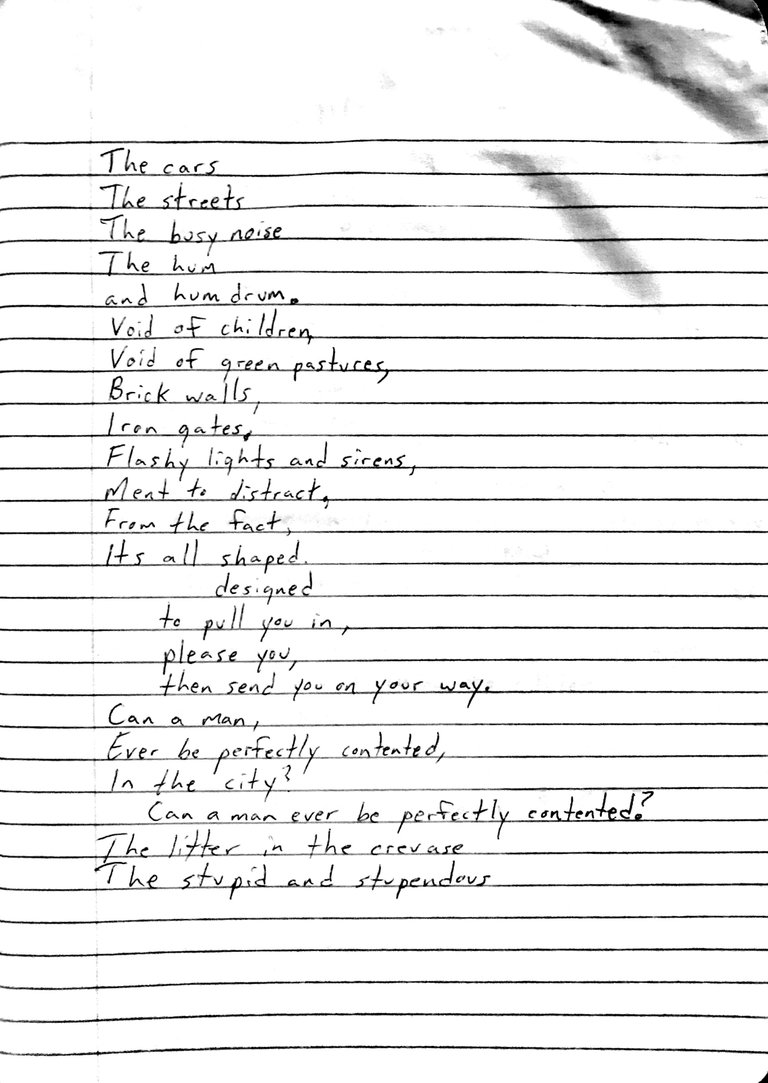 The cars
The streets
The busy noise
The hum
and hum drum.
Void of children,
Void of green pastures,
Brick walls,
Iron gates,
Flashy lights and sirens,
Ment to distract,
From the fact,
Its all shaped.
designed
to pull you in,
please you,
then send you on your way.
Can a man,
Ever be perfectly contented,
In the city?
Can a man ever be perfectly contented?
The litter in the crevase
The stupid and stupendous